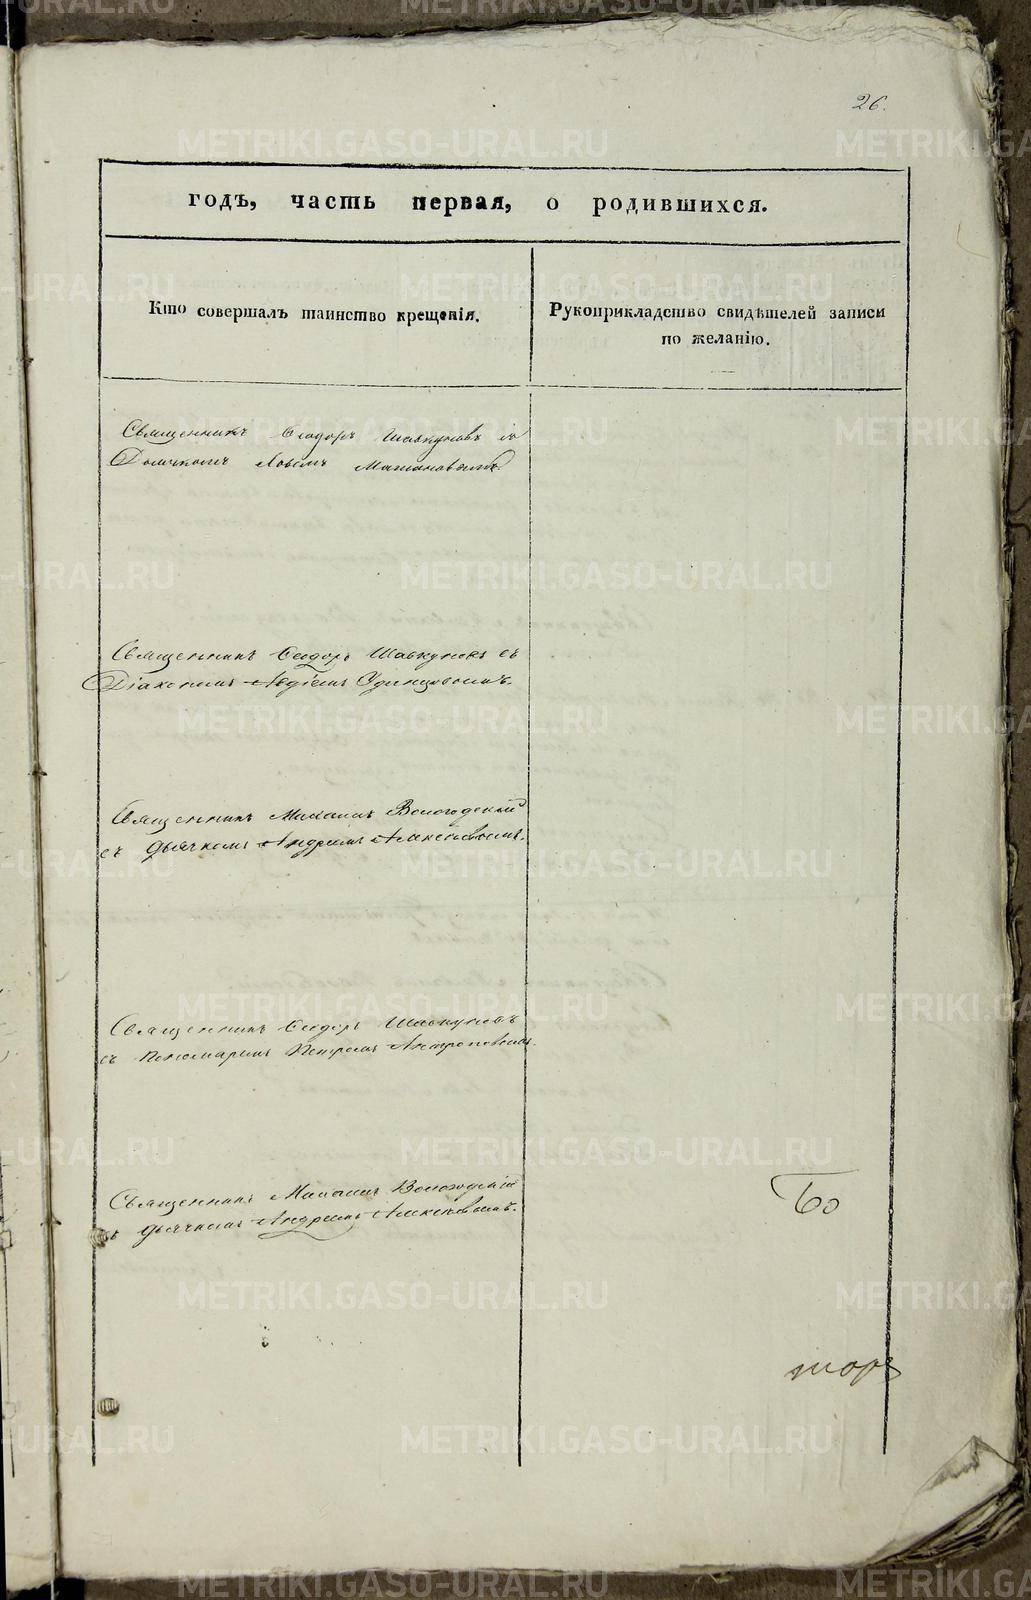 26.
годъ, часть первая, о родившихся.
Кто совершалъ таинство крещенія.
Рукоприкладство свидѣтелей записи
по желанію.
Священникъ Ѳеодоръ Шавкуновъ съ
Дьячкомъ
Священникъ Ѳеодоръ Шавкуновъ съ
Діакономъ Авдіемъ Одинцовымъ.
Священникъ Михаилъ Вологодскій
съ дьячкомъ Андреемъ Алексѣевымъ.
Священникъ Ѳеодоръ Шавкуновъ
съ Пономаремъ Петромъ Антроповымъ.
Священникъ Михаилъ Вологодскій
съ дьячкомъ Андреемъ Алексѣевымъ.
METRIKI.GASO-URAL.RU